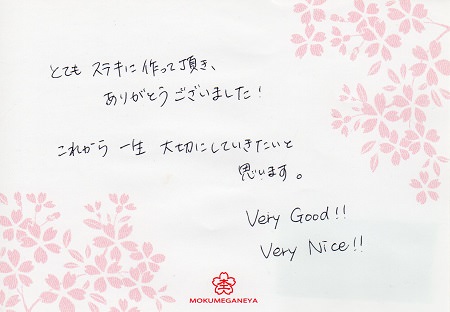 とても ステキに 作って頂き、
ありがとうございました!
これから 一生 大切にしていきたいと
思います。
Very Good!!
Very Nice!!
MOKUMEGANEYA